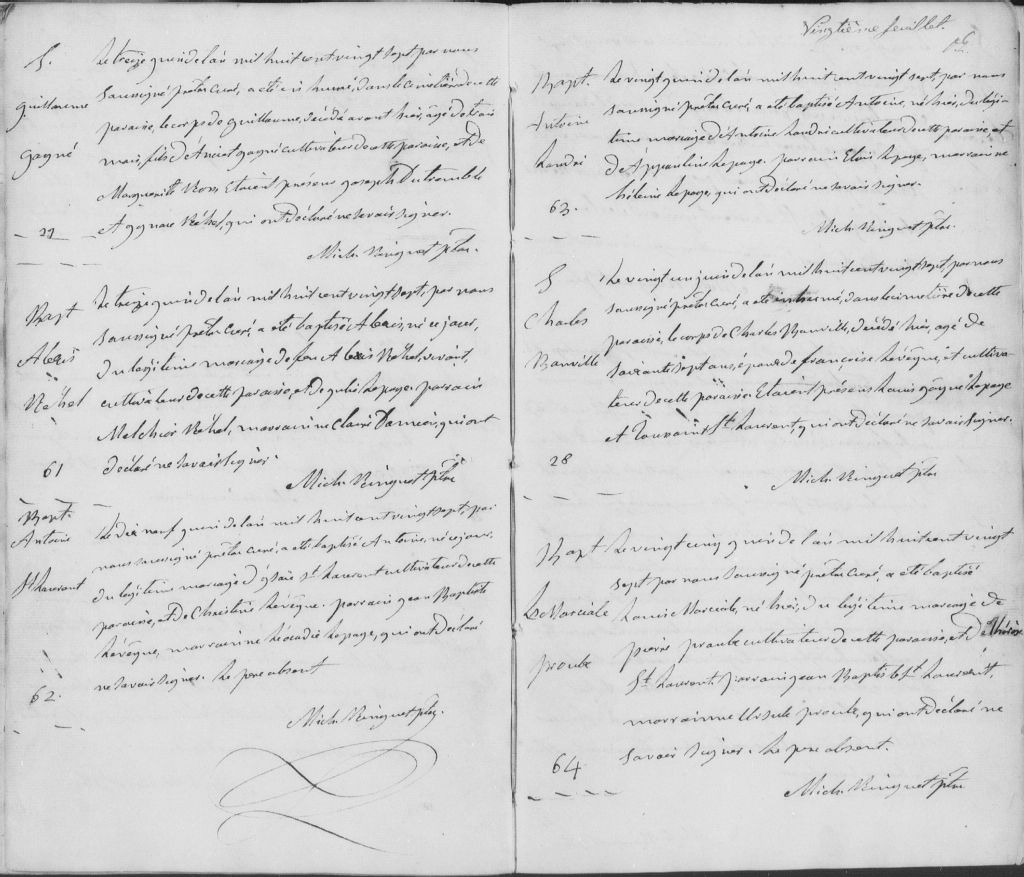 S.
Guillaume
Gagné
27
Le treize juin de l'an mil huit cent vingt sept, par nous
soussigné prêtre Curé, a été inhumé, dans le cimetière de cette
paroisse, le corps de Guillaume, décédé avant hier, âgé de trois
mois, fils d'Anicet Gagné cultivateur de cette paroisse, et de
Marguerite Ross. Etaient présens Joseph Dutremble
et Ignace Réhel, qui ont déclaré ne savoir signer.
Mich. Ringuet ptre.
Bapt
Alexis
Réhel
61
Le treize juin de l'an mil huit cent vingt sept, par nous
soussigné prêtre Curé, a été baptisé Alexis, né ce jour,
du légitime mariage de feu Alexis Réhel, vivant,
cultivateur de cette paroisse, et de Julie Lepage. parrain
Melchior Réhel, marraine Claire Damien, qui ont
déclaré ne savoir signer.
Mich. Ringuet ptre
Bapt.
Antoine
St Laurent
62.
Le dix neuf juin de l'an mil huit cent vingt sept, par
nous soussigné prêtre Curé, a été baptisé Antoine, né ce jour,
du légitime mariage d'Isaïe St. Laurent cultivateur de cette
paroisse, et de Christine Lévêque. parrain Jean Baptiste
Lévêque, marraine Léocadie Lepage, qui ont déclaré
ne savoir signer. Le père absent
Mich. Ringuet ptre.
Vingtième feuillet.
Bapt.
Antoine
Landri
63.
Le vingt juin de l'an mil huit cent vingt sept, par nous
soussigné prêtre Curé, a été baptisé Antoine, né hier, du légi
time mariage d'Antoine Landri cultivateur de cette paroisse, et
de Appauline Lepage. parrain Eloi Lepage, marraine
hélène Lepage, qui ont déclaré ne savoir signer.
Mich. Ringuet ptre.
S
Charles
Banville
28
Le vingt un juin de l'an mil huit cent vingt sept, par nous
soussigné prêtre Curé, a été inhumé, dans le cimetière de cette
paroisse, le corps de Charles Banville, décédé hier, âgé de
soixante sept ans, époux de françoise Lévêque, et cultiva-
teur de cette paroisse. Etaient présens Louis Lepage
et Toussaint St. Laurent, qui ont déclaré ne savoir signer.
Mich. Ringuet ptre
Bapt
Ls Marciale
proulx
64
Le vingt cinq juin de l'an mil huit cent vingt
sept par nous soussigné prêtre Curé, a été baptisé
Louis Marciale, né hier, du légitime mariage de
pierre proulx cultivateur de cette paroisse, et de
St. Laurent. parrain Jean Baptiste St. Laurent,
marraine Ursule proulx, qui ont déclaré ne
savoir signer. Le père absent.
Mich. Ringuet ptre